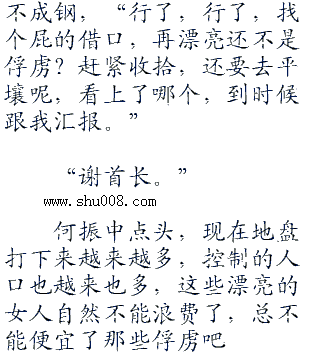 不成钢，“行了，行了，找
个屁的借口，再漂亮还不是
俘虏？赶紧收拾，还要去平
壤呢，看上了哪个，到时候
跟我汇报。”
“谢首长。”
www.shu008.com
何振中点头，现在地盘
打下来越来越多，控制的人
口也越来也多，这些漂亮的
女人自然不能浪费了，总不
能便宜了那些俘虏吧